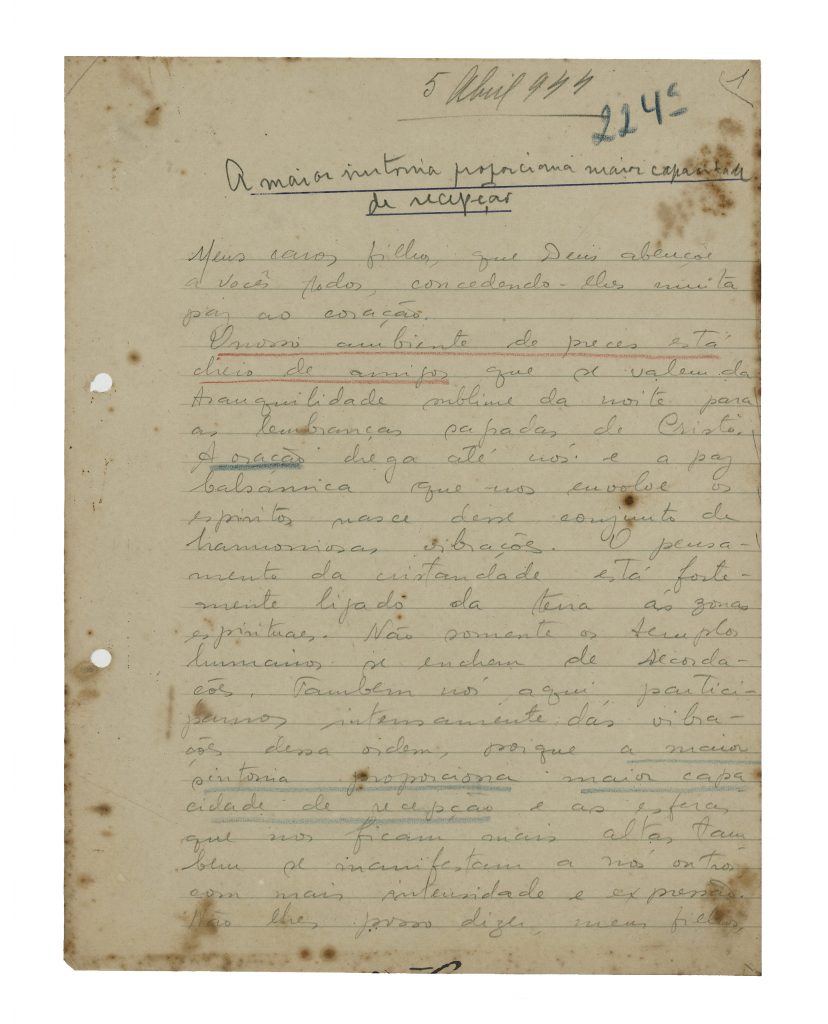 5 Abril 944
224ª
1
A maior sintonia proporciona maior capacidade
de recepção
Meus caros filhos, que Deus abençôe
a vocês todos, concedendo-lhes muita
paz ao coração.
O nosso ambiente de preces está
cheio de amigos que se valem da
tranquilidade sublime da noite para
as lembranças sagradas de Cristo.
A oração chega até nós e a paz
balsâmica que nos envolve os
espiritos nasce desse conjunto de
harmoniosas vibrações. O pensa-
mento da cristandade está forte-
mente ligado da terra ás zonas
espirituaes. Não somente os templos
humanos se enchem de recorda-
ções. Tambem nós aqui partici-
pamos intensamente das vibra-
ções dessa ordem, porque a maior
sintonia proporciona maior capa
cidade de recepção e as esferas
que nos ficam mais altas tam
bem se manifestam a nós outros
com mais intensidade e expressão.
Não lhes posso dizer, meus filhos,